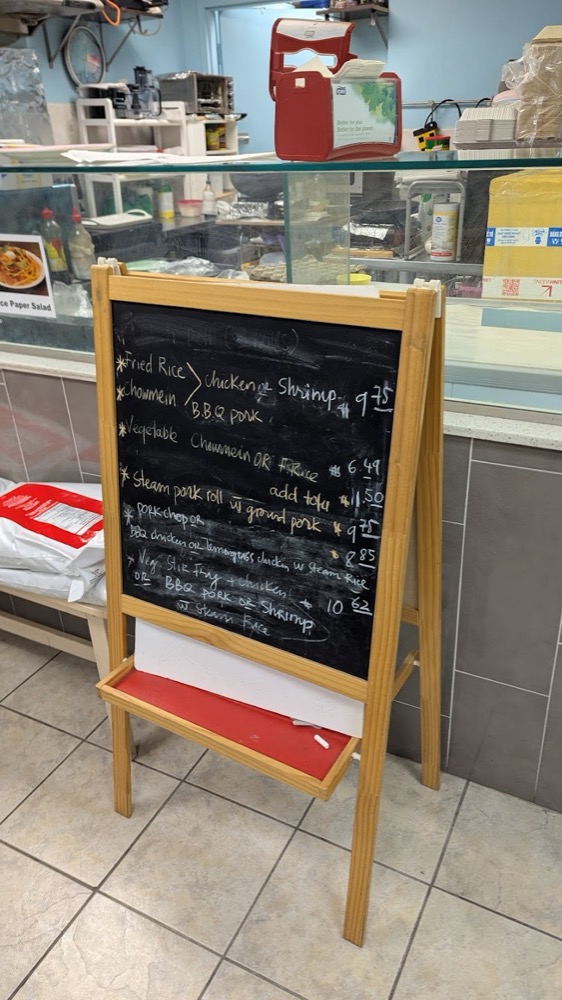 Better for you.
Better for the planet.
ce Paper Salad
*Fried Rice > chicken or Shrimp. $ 9 75
*Chowmein B.B.Q pork
*Vegetable Chowmein OR F.Rice $ 6.49
add tofu $ 1.50
*Steam pork roll w ground pork $ 9 75
*pork chop OR
BBQ chicken or lemongrass chicken w Steam Rice $ 8 85
*Veg Stir Fry + chicken
OR BBQ PORK OR Shrimp $ 10 62
w Steam Rice